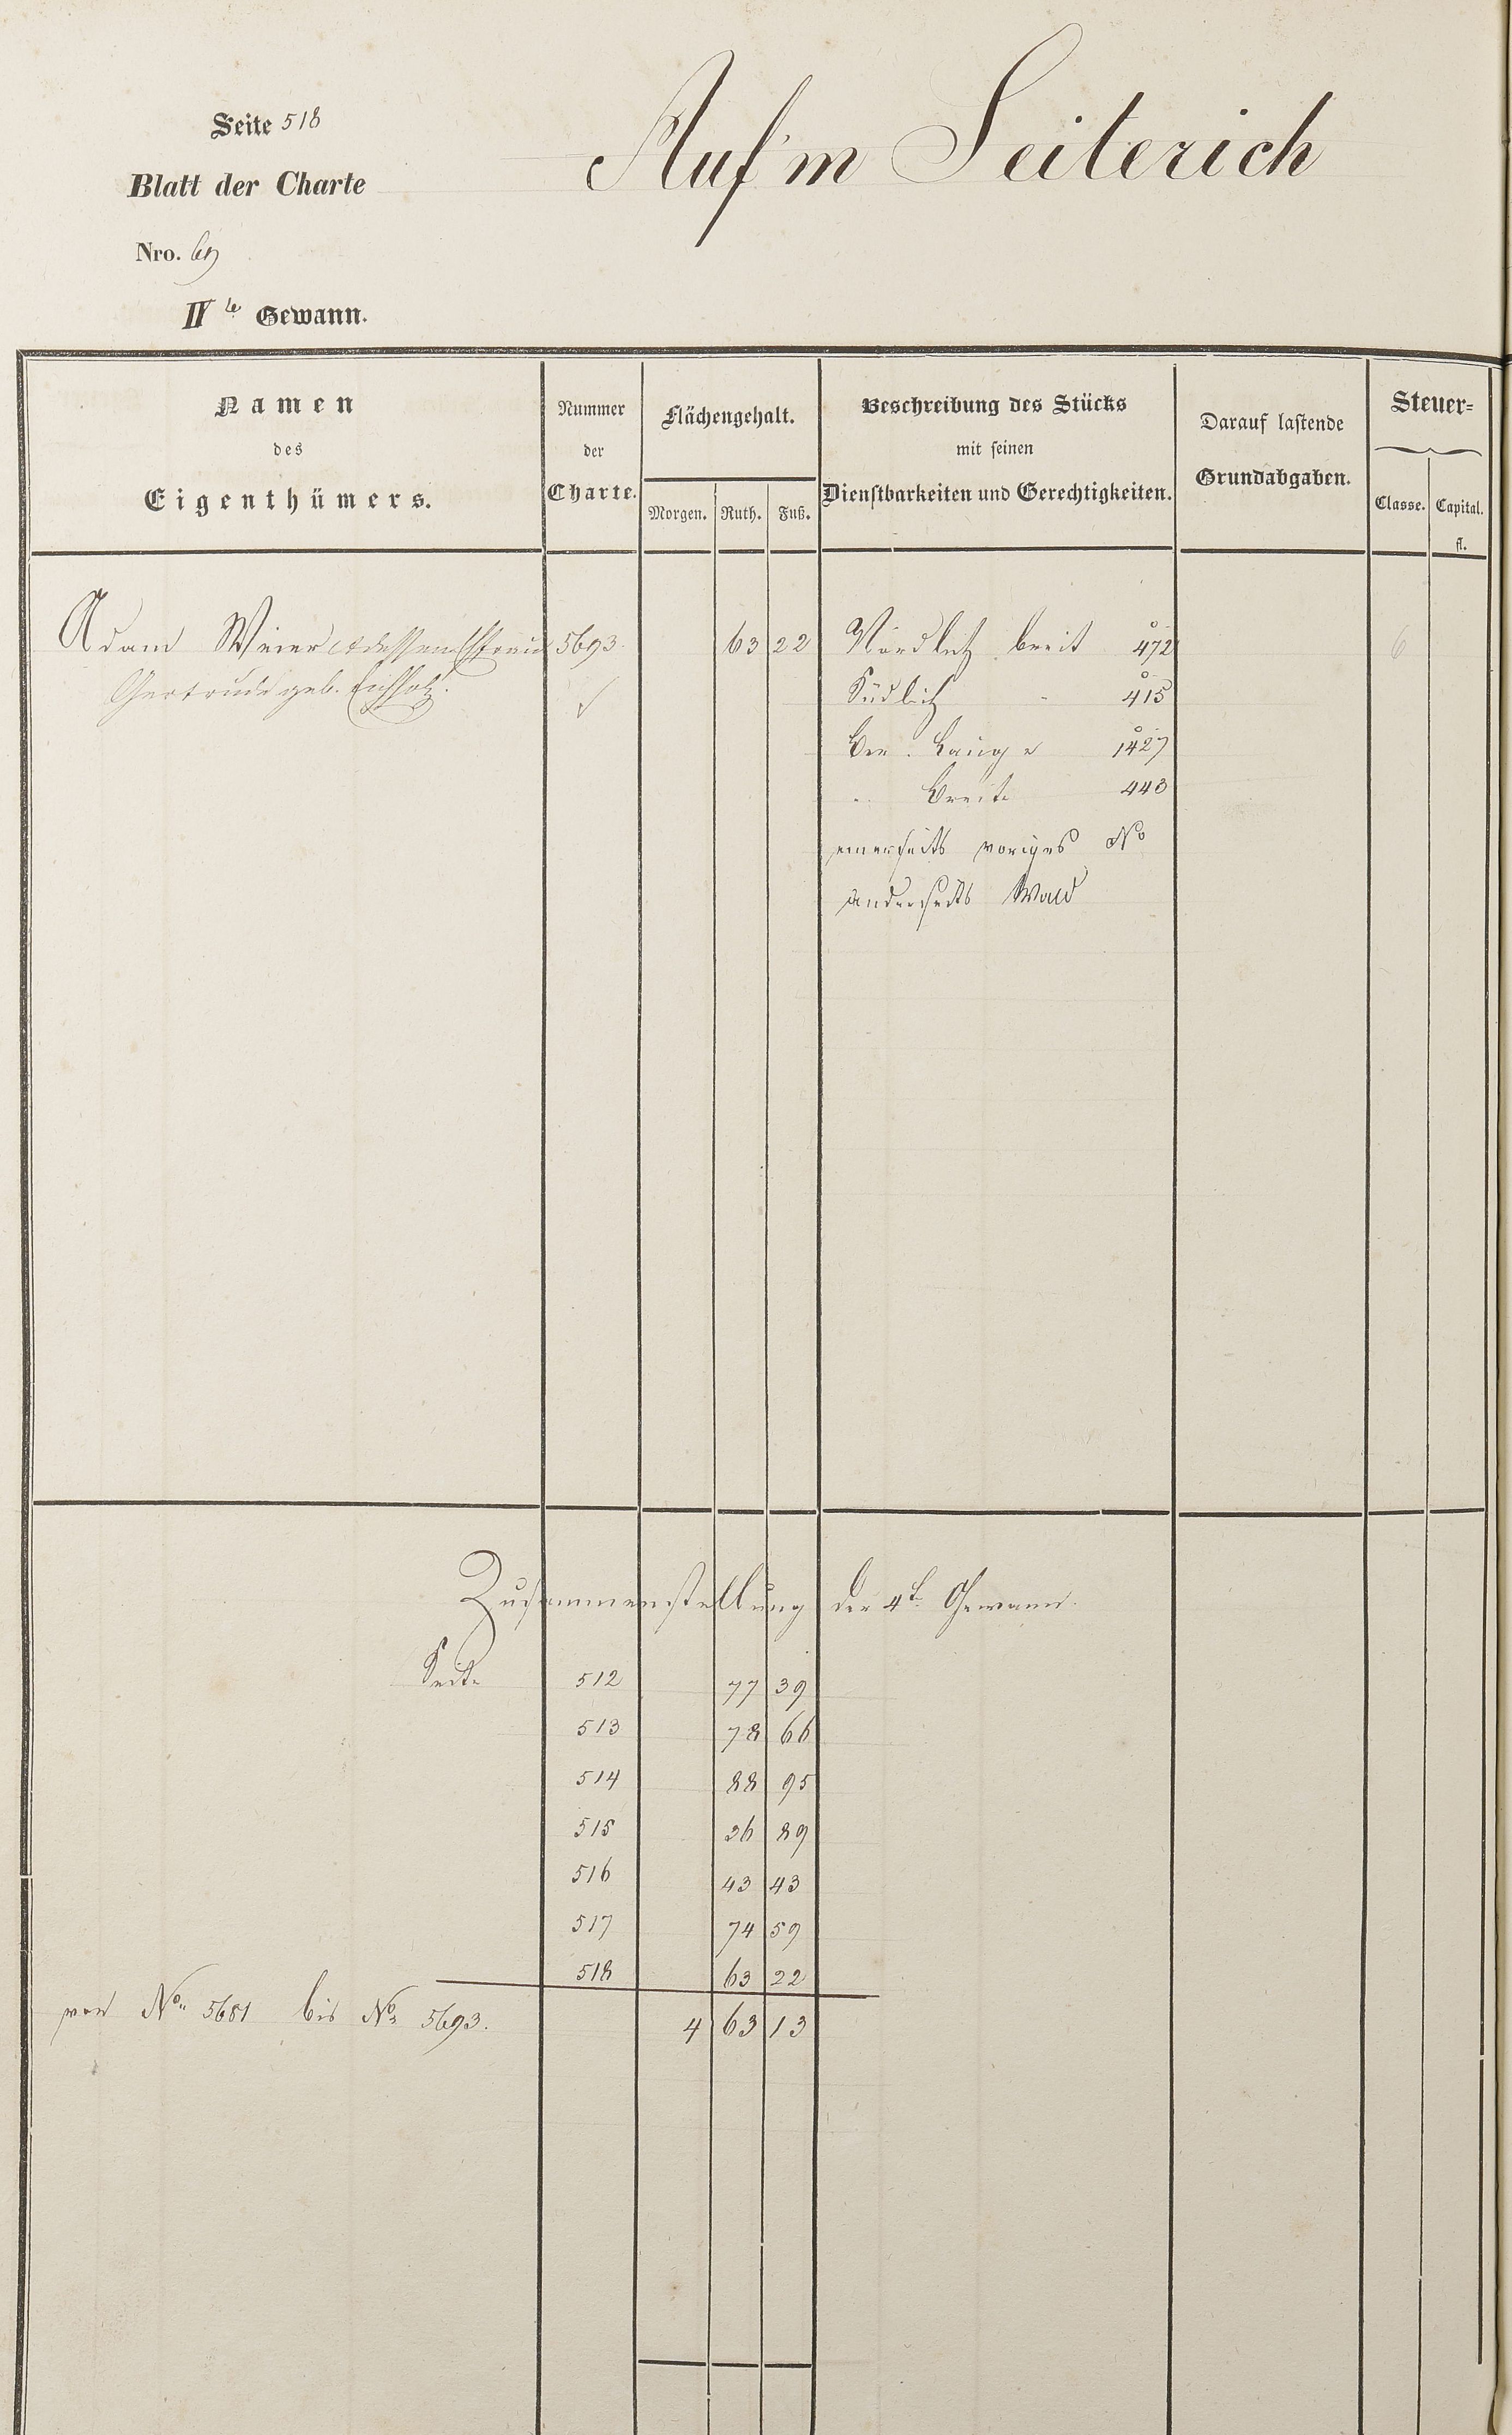 Seite 518
Blatt der Charte
Nro. 69
IV te Gewann.
Auf'm Seiterich
Namen
des
Eigenthümers.
Nummer
der
Charte.
Flächengehalt.
Morgen. Ruth. Fuß.
Beschreibung des Stücks
mit seinen
Dienstbarkeiten und Gerechtigkeiten.
Darauf lastende
Grundabgaben.
Steuer-
Classe. Capital.
fl.
Adam Weier & dessen Ehfrau 5693. 63 22 Nördlich breit 472 6
Gertrude geb. Eichholz. ✓ Südlich - 415
Ber. Länge 1427
" Breite 443
einerseits voriges No
anderseits Wald
Zusammenstellung der 4t. Gewann.
Seite 512 77 39
513 78 66
514 88 95
515 36 89
516 43 43
517 74 59
518 63 22
von No. 5681 bis No. 5693. 4 63 13